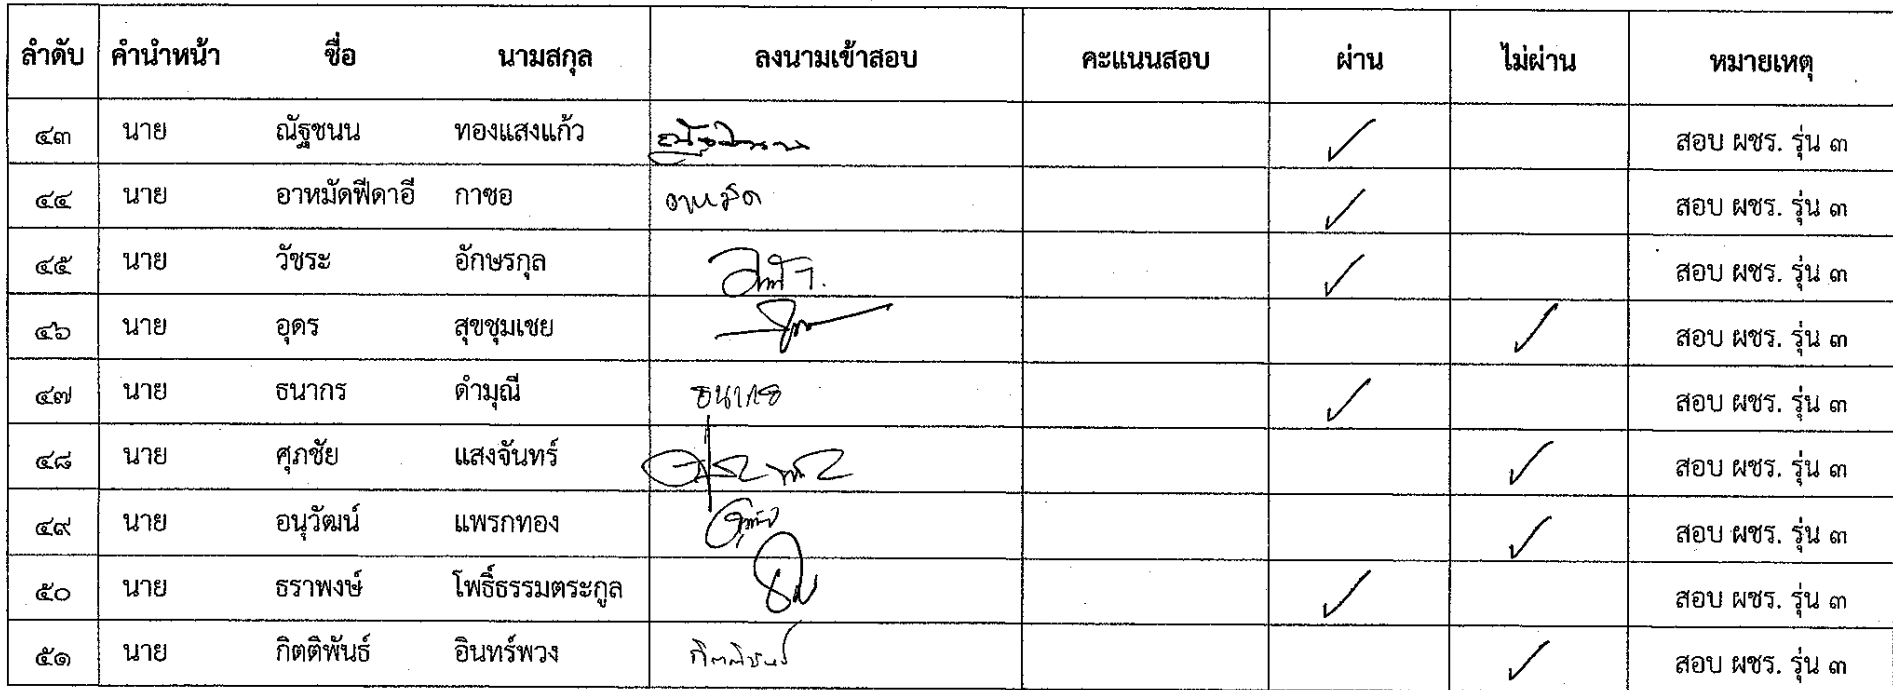 ลำดับ คำนำหน้า ชื่อ นามสกุล ลงนามเข้าสอบ คะแนนสอบ ผ่าน ไม่ผ่าน หมายเหตุ
๔๓ นาย ณัฐชนน ทองแสงแก้ว ✓ สอบ ผชร. รุ่น ๓
๔๔ นาย อาหมัดฟีดาอี กาซอ อาหมัด ✓ สอบ ผชร. รุ่น ๓
๔๕ นาย วัชระ อักษรกุล ✓ สอบ ผชร. รุ่น ๓
๔๖ นาย อุดร สุขชุมเชย ✓ สอบ ผชร. รุ่น ๓
๔๗ นาย ธนากร ดำมุณี ธนากร ✓ สอบ ผชร. รุ่น ๓
๔๘ นาย ศุภชัย แสงจันทร์ ✓ สอบ ผชร. รุ่น ๓
๔๙ นาย อนุวัฒน์ แพรกทอง ✓ สอบ ผชร. รุ่น ๓
๕๐ นาย ธราพงษ์ โพธิ์ธรรมตระกูล ✓ สอบ ผชร. รุ่น ๓
๕๑ นาย กิตติพันธ์ อินทร์พวง กิตติพันธ์ ✓ สอบ ผชร. รุ่น ๓